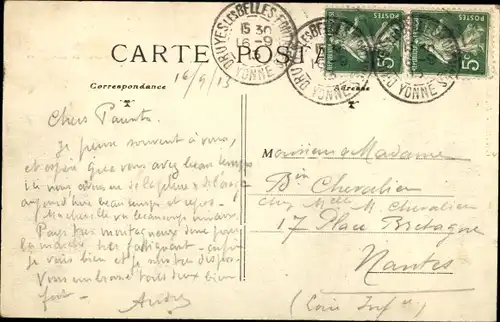 CARTE POSTALE
DRUYES LES BELLES FONTAINES
15 30
16-9
YONNE
POSTES
5
POSTES
5
Correspondance
Adresse
16/9/13
Chers Parents
Je pense souvent à vous,
et espère que vous avez beau temps
ici nous avons eu de la pluie
aujourd'hui beau temps et repos.
va beaucoup mieux.
Pays très montagneux donc pour
la marche très fatigant - enfin
je vais bien et je
Vous embrasse tous deux bien
fort -
André
Monsieur & Madame
Bin Chevalier
chez Melle M. Chevalier
17 Place Bretagne
Nantes
(Loire Infre)